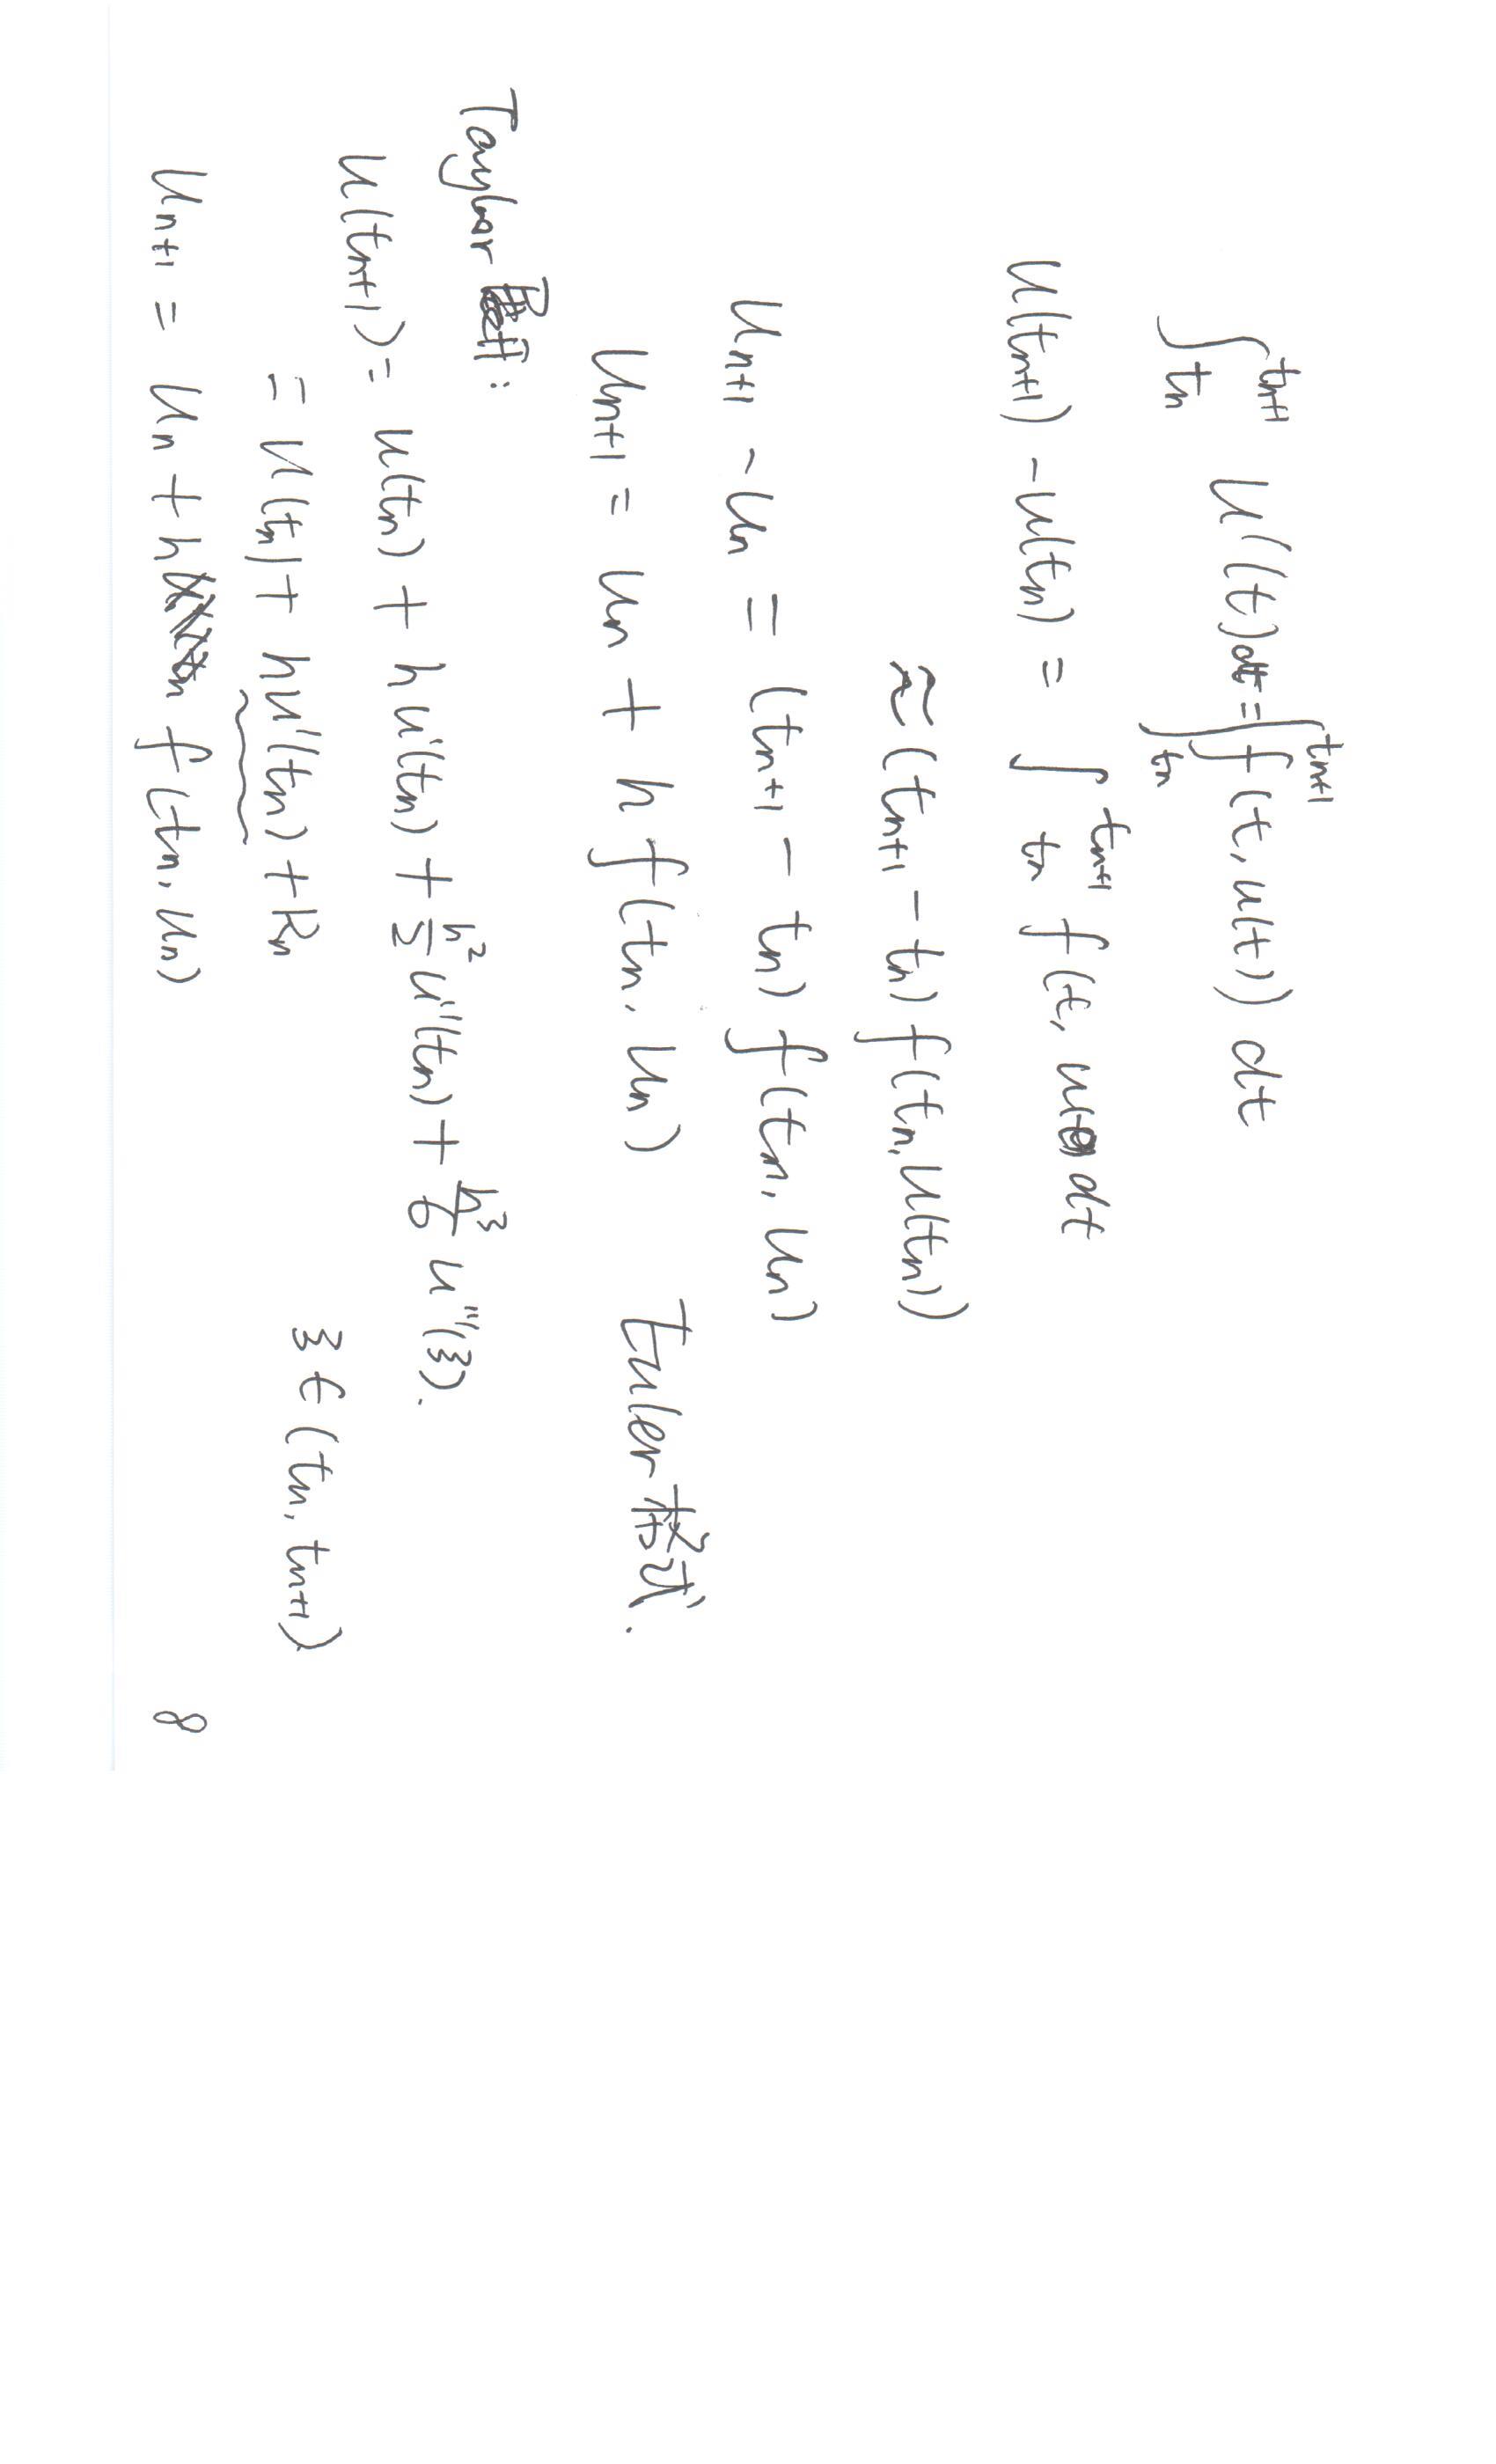 ∫_{tn}^{tn+1} u'(t)dt = ∫_{tn}^{tn+1} f(t, u(t)) dt
u(tn+1) - u(tn) = ∫_{tn}^{tn+1} f(t, u(t)) dt
≈ (tn+1 - tn) f(tn, u(tn))
un+1 - un = (tn+1 - tn) f(tn, un)
un+1 = un + h f(tn, un) Euler格式.
Taylor展开:
u(tn+1) = u(tn) + hu'(tn) + h²/2 u''(tn) + h³/6 u'''(ξ).
= u(tn) + hu'(tn) + Rn ξ ∈ (tn, tn+1)
un+1 = un + h f(tn, un)
8